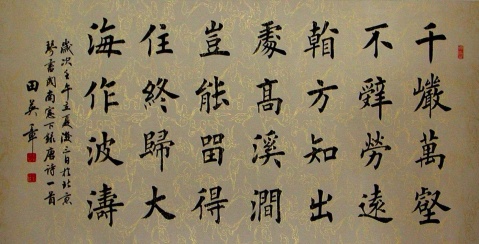 千巖萬壑
不辤勞遠
看方知出
處髙溪澗
豈能留得
住終歸大
海作波濤
歲次壬午立夏後三日於北京
琴書閣南窓下錄唐詩一首
田英章